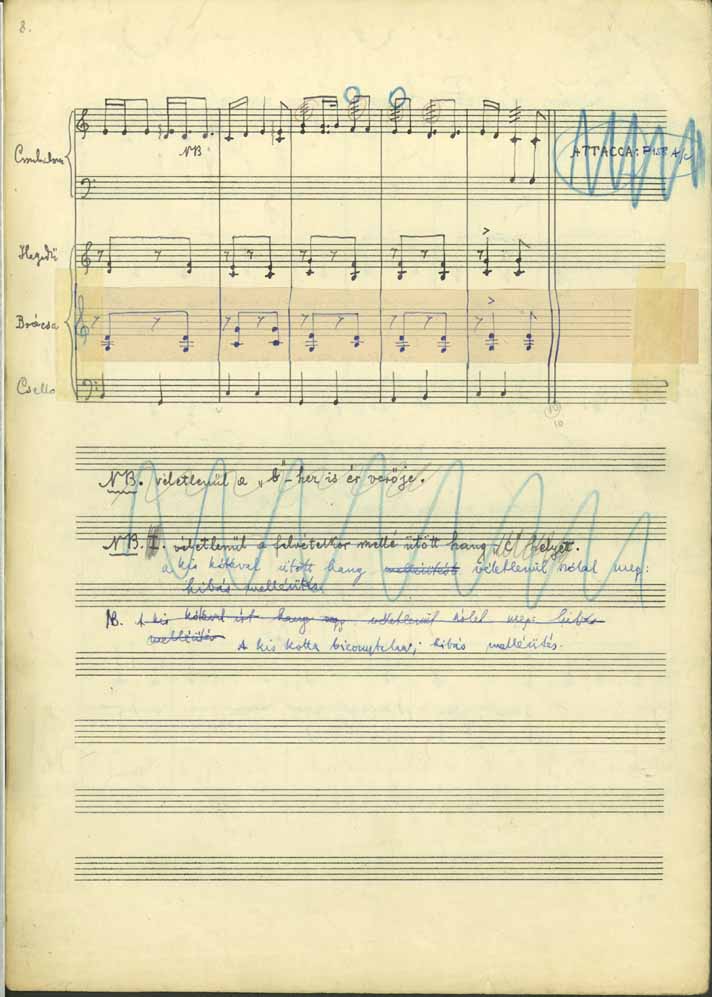 8.
Cimbalom
NB
ATTACCA:
Hegedű
Brácsa
Csello
10
10
NB. véletlenül a „b"-hez is ér verője.
NB. I. véletlenül a felvételkor mellé ütött hang
a kis kótával ütött hang melléütést véletlenül szólal meg:
hibás melléütés.
NB. A kis kótával írt hang véletlenül szólal meg: hibás
melléütés A kis kotta bizonytalan; hibás melléütés.